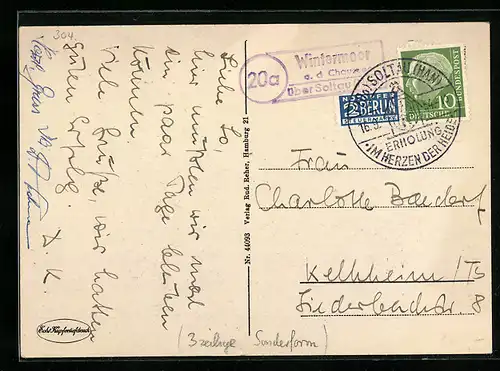 304.
Wintermoor
a. d. Chaussee
über Soltau
20a
NOTOPFER
2 BERLIN
STEUERMARKE
SOLTAU (HAN)
ERHOLUNG
IM HERZEN DER HEIDE
DEUTSCHE BUNDESPOST
10
Liebe Lo,
hier mußten wir mal
ein paar Tage bleiben
können.
Viele Grüße, wir hatten
guten Erfolg.
D. K.
Frau
Charlotte Baedorf
Kelkheim/Ts
Liederbachstr. 8
Nr. 44093 Verlag Rud. Reher, Hamburg 21
Echt Kupfertiefdruck
(3zeilige Sonderform)